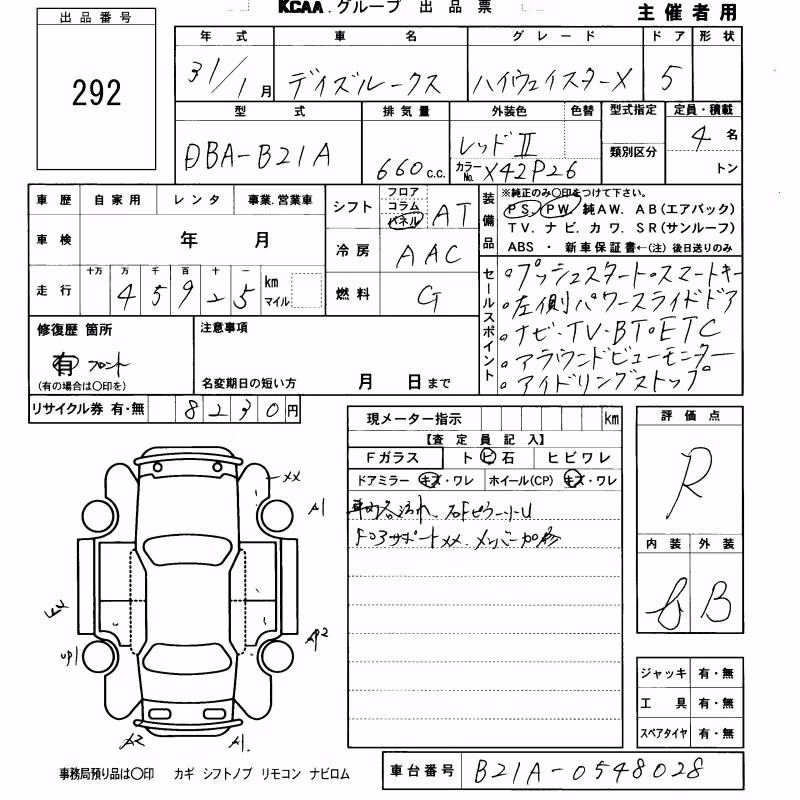 KCAA.グループ 出品票
主催者用
出品番号
292
年式 車名 グレード ドア 形状
31/1月 デイズルークス ハイウェイスターX 5
型式 排気量 外装色 色替 型式指定 定員・積載
DBA-B21A 660c.c. レッドⅡ カラーNo. X42P26 類別区分 4名 トン
車歴 自家用 レンタ 事業.営業車
車検 年 月
走行 十万 万 千 百 十 一 km マイル
45925
シフト フロア コラム パネル AT
冷房 AAC
燃料 G
装備品 ※純正のみ〇印をつけて下さい。
PS. PW. 純AW. AB(エアバック)
TV. ナビ. カワ. SR(サンルーフ)
ABS ・ 新車保証書←(注)後日送りのみ
セールスポイント
・プッシュスタート・スマートキー
・左側パワースライドドア
・ナビ・TV・BT・ETC
・アラウンドビューモニター
・アイドリングストップ
修復歴 箇所
有 フロント
(有の場合は〇印を)
注意事項
名変期日の短い方 月 日まで
リサイクル券 有・無 8230円
現メーター指示 km
【査定員記入】
Fガラス トビ石 ヒビワレ
ドアミラー キズ・ワレ ホイール(CP) キズ・ワレ
評価点
R
内装 外装
B
XX
A1
A2
A1.
ジャッキ 有・無
工具 有・無
スペアタイヤ 有・無
事務局預り品は〇印 カギ シフトノブ リモコン ナビロム
車台番号 B21A-0548028